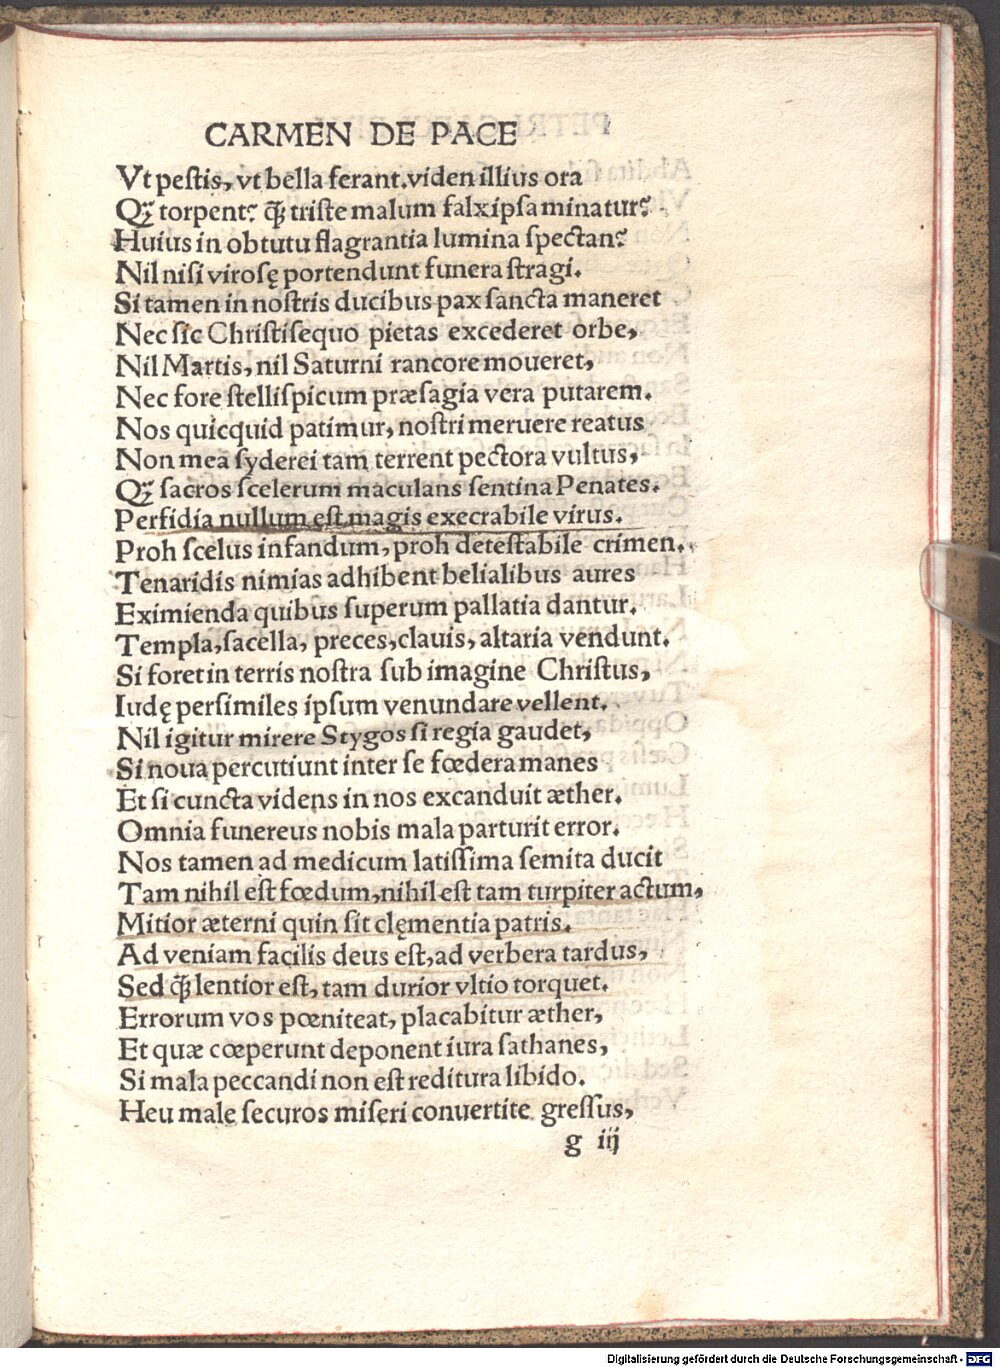 CARMEN DE PACE
Vt peſtis, vt bella ferant. viden illius ora
Qꝫ torpent? q̃ȝ triſte malum falx ipſa minatur?
Huius in obtutu flagrantia lumina ſpectans?
Nil niſi viroſę portendunt funera ſtragi.
Si tamen in noſtris ducibus pax ſancta maneret
Nec ſic Chriſtiſequo pietas excederet orbe,
Nil Martis, nil Saturni rancore moueret,
Nec fore ſtelliſpicum præſagia vera putarem.
Nos quicquid patimur, noſtri meruere reatus
Non mea ſyderei tam terrent pectora vultus,
Qꝫ ſacros ſcelerum maculans ſentina Penates.
Perfidia nullum eſt magis execrabile virus.
Proh ſcelus infandum, proh deteſtabile crimen.
Tenaridis nimias adhibent belialibus aures
Eximienda quibus ſuperum pallatia dantur.
Templa, ſacella, preces, clauis, altaria vendunt.
Si foret in terris noſtra ſub imagine Chriſtus,
Iudę perſimiles ipſum venundare vellent.
Nil igitur mirere Stygos ſi regia gaudet,
Si noua percutiunt inter ſe fœdera manes
Et ſi cuncta videns in nos excanduit æther.
Omnia funereus nobis mala parturit error.
Nos tamen ad medicum latiſſima ſemita ducit
Tam nihil eſt fœdum, nihil eſt tam turpiter actum,
Mitior æterni quin ſit clęmentia patris.
Ad veniam facilis deus eſt, ad verbera tardus,
Sed q̃ȝ lentior eſt, tam durior vltio torquet.
Errorum vos pœniteat, placabitur æther,
Et quæ cœperunt deponent iura ſathanes,
Si mala peccandi non eſt reditura libido.
Heu male ſecuros miſeri conuertite greſſus,
g iij
Digitalisierung gefördert durch die Deutsche Forschungsgemeinschaft - DFG